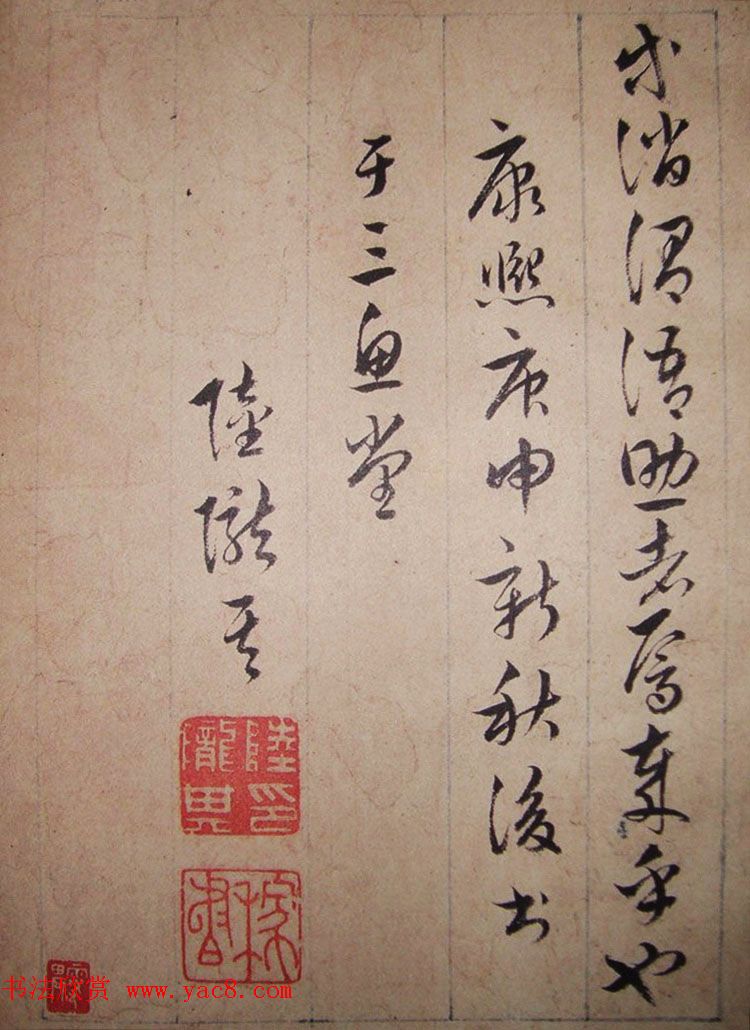 等誚謂語助者焉哉乎也
康熙庚申新秋後書
于三魚堂
陸隴其
陸印隴其
稼書
书法欣赏 www.yac8.com